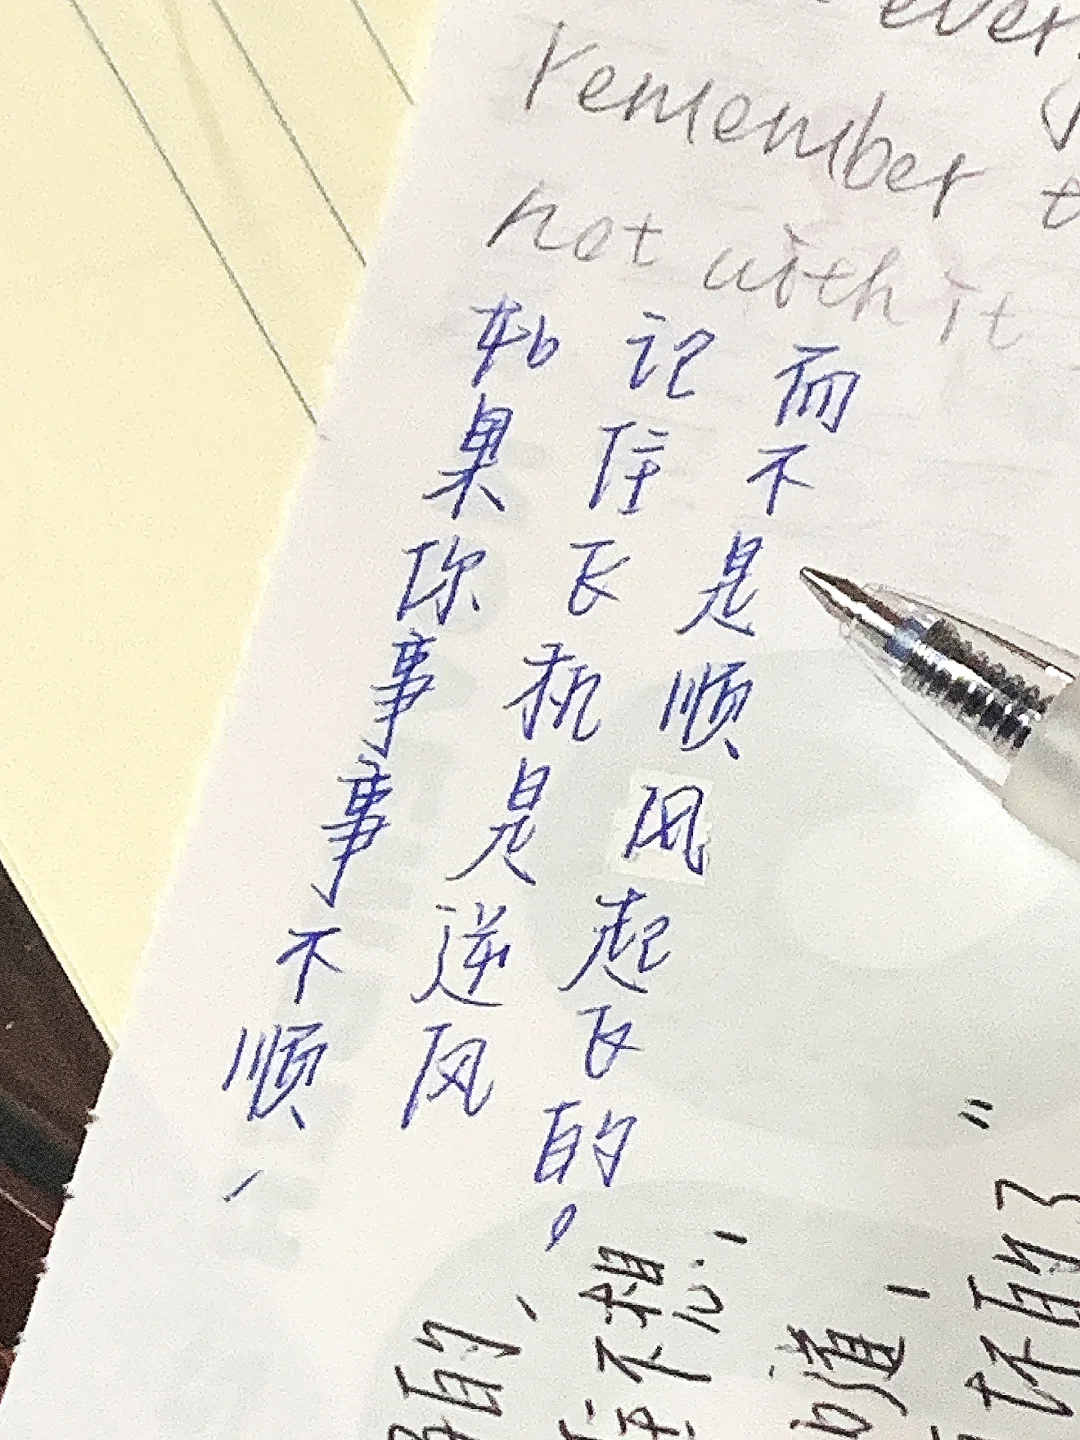 remember
not with it
如果你事事不顺，
记住飞机是逆风
而不是顺风起飞的。
的，
不想，
的值，
的了"